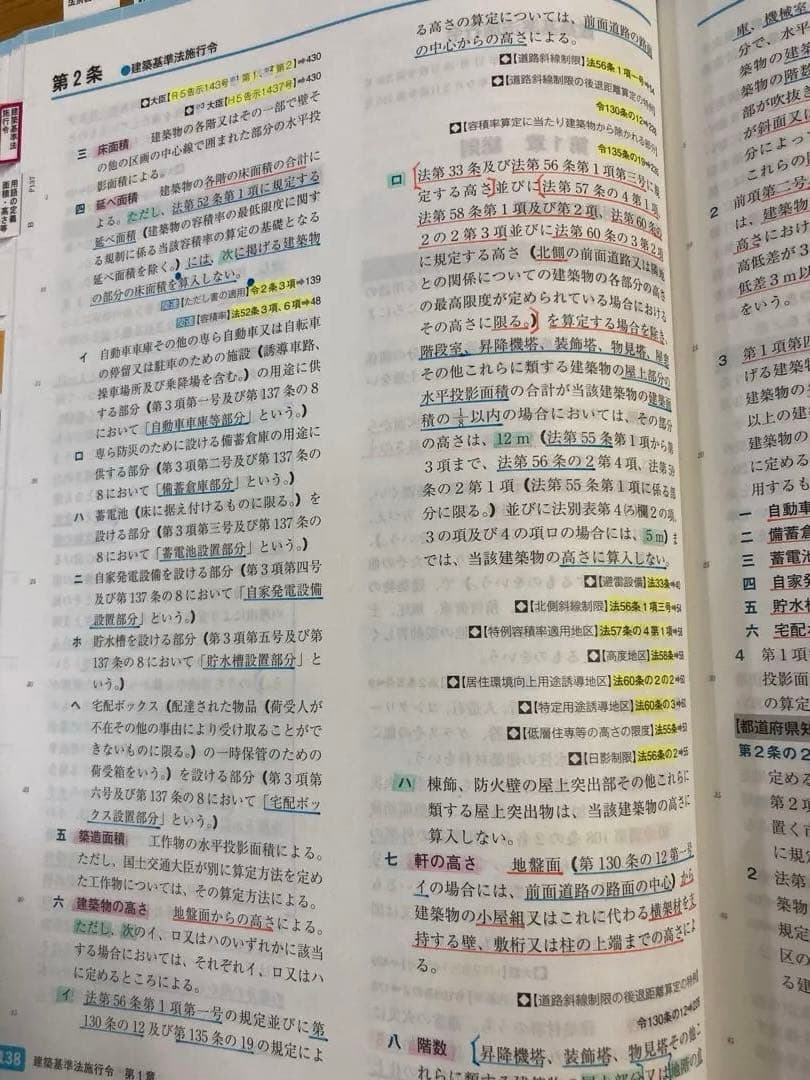 第2条 ●建築基準法施行令
◆大臣【R5告示143号※1第1、※2第2】⇨430
◆※3大臣【H5告示1437号】⇨430
三 床面積 建築物の各階又はその一部で壁そ
の他の区画の中心線で囲まれた部分の水平投
影面積による。
四 延べ面積 建築物の各階の床面積の合計に
よる。ただし、法第52条第1項に規定する
延べ面積（建築物の容積率の最低限度に関す
る規制に係る当該容積率の算定の基礎となる
延べ面積を除く。）には、次に掲げる建築物
の部分の床面積を算入しない。
関連【ただし書の適用】令2条3項⇨139
関連【容積率】法52条3項、6項⇨48
イ 自動車車庫その他の専ら自動車又は自転車
の停留又は駐車のための施設（誘導車路、
操車場所及び乗降場を含む。）の用途に供
する部分（第3項第一号及び第137条の8
において「自動車車庫等部分」という。）
ロ 専ら防災のために設ける備蓄倉庫の用途に
供する部分（第3項第二号及び第137条の
8において「備蓄倉庫部分」という。）
ハ 蓄電池（床に据え付けるものに限る。）を
設ける部分（第3項第三号及び第137条の
8において「蓄電池設置部分」という。）
ニ 自家発電設備を設ける部分（第3項第四号
及び第137条の8において「自家発電設備
設置部分」という。）
ホ 貯水槽を設ける部分（第3項第五号及び第
137条の8において「貯水槽設置部分」と
いう。）
ヘ 宅配ボックス（配達された物品（荷受人が
不在その他の事由により受け取ることがで
きないものに限る。）の一時保管のための
荷受箱をいう。）を設ける部分（第3項第
六号及び第137条の8において「宅配ボッ
クス設置部分」という。）
五 築造面積 工作物の水平投影面積による。
ただし、国土交通大臣が別に算定方法を定め
た工作物については、その算定方法による。
六 建築物の高さ 地盤面からの高さによる。
ただし、次のイ、ロ又はハのいずれかに該当
する場合においては、それぞれイ、ロ又はハ
に定めるところによる。
イ 法第56条第1項第一号の規定並びに第
130条の12及び第135条の19の規定によ
138 建築基準法施行令 第1章
建築基準法
施行令
用語の定義
面積・高さ等
る高さの算定については、前面道路の路面
の中心からの高さによる。
◆【道路斜線制限】法56条1項一号⇨54
◆【道路斜線制限の後退距離算定の特例】
令130条の12⇨
◆【容積率算定に当たり建築物から除かれる部分】
令135条の19⇨
ロ 法第33条及び法第56条第1項第三号に規
定する高さ並びに法第57条の4第1項、
法第58条第1項及び第2項、法第60条の
2の2第3項並びに法第60条の3第2項
に規定する高さ（北側の前面道路又は隣地
との関係についての建築物の各部分の高さ
の最高限度が定められている場合における
その高さに限る。）を算定する場合を除き、
階段室、昇降機塔、装飾塔、物見塔、屋窓
その他これらに類する建築物の屋上部分の
水平投影面積の合計が当該建築物の建築面
積の1/8以内の場合においては、その部分
の高さは、12m（法第55条第1項から第
3項まで、法第56条の2第4項、法第59
条の2第1項（法第55条第1項に係る部
分に限る。）並びに法別表第4(ろ)欄2の項、
3の項及び4の項ロの場合には、5m）ま
では、当該建築物の高さに算入しない。
◆【避雷設備】法33条⇨40
◆【北側斜線制限】法56条1項三号⇨54
◆【特例容積率適用地区】法57条の4第1項⇨58
◆【高度地区】法58条⇨
◆【居住環境向上用途誘導地区】法60条の2の2⇨
◆【特定用途誘導地区】法60条の3⇨
◆【低層住専等の高さの限度】法55条⇨
◆【日影制限】法56条の2⇨
ハ 棟飾、防火壁の屋上突出部その他これらに
類する屋上突出物は、当該建築物の高さに
算入しない。
七 軒の高さ 地盤面（第130条の12第一号
イの場合には、前面道路の路面の中心）から
建築物の小屋組又はこれに代わる横架材を支
持する壁、敷桁又は柱の上端までの高さによ
る。
◆【道路斜線制限の後退距離算定の特例】
令130条の12⇨
八 階数 昇降機塔、装飾塔、物見塔その他こ
れらに類する建築物の屋上部分又は地階の倉
庫、機械室
分で、水平
築物の建築
築物の階数
が吹抜き
が斜面又は
分によっ
これらの
2 前項第二号
は、建築物
高さにおけ
高低差が3m
低差3m以
をいう。
3 第1項第四
げる建築物の
建築物の
以上の建築
建築物の
に定める
用するもの
一 自動車
二 備蓄倉
三 蓄電池
四 自家発
五 貯水槽
六 宅配ボ
4 第1項
投影面積
面積の
【都道府県知
第2条の2
定める
第2項
置く市
に規定
2 法第
築物
規定
区の
る建